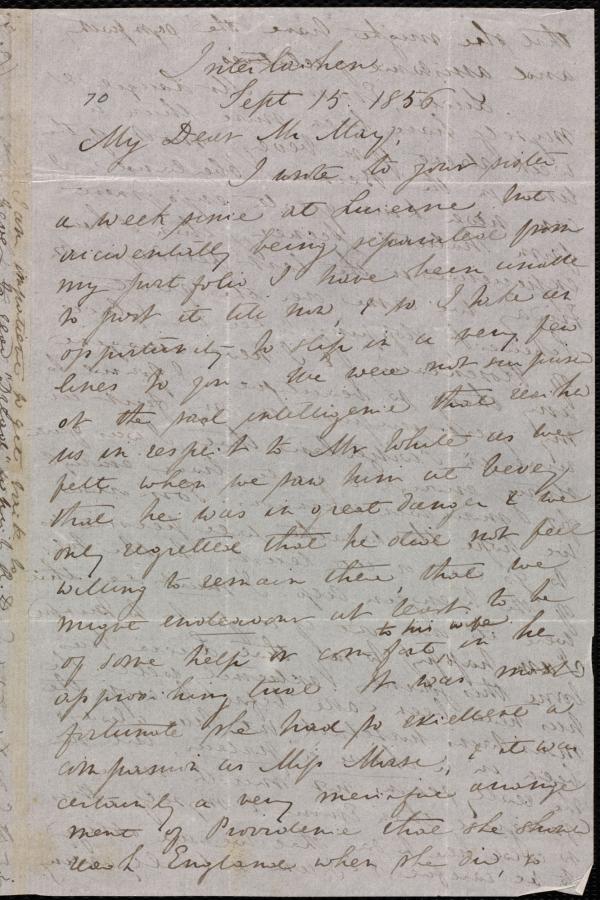 Interlachen
70 Sept 15. 1856
My Dear Mr May,
I wrote to your sister
a week since at Lucerne but
accidentally being separated from
my portfolio I have been unable
to post it till now, & so I take an
opportunity to slip in a very few
lines to you. We were not surprised
at the sad intelligence that reached
us in respect to Mr White as we
felt when we saw him at Vevey
that he was in great danger & we
only regretted that he did not feel
willing to remain there, that we
might endeavour at least to be
of some help or comfort to his wife in the
approaching trial. It was most
fortunate she had so excellent a
companion as Miss Morse, & it was
certainly a very merciful arrange
ment of Providence that she should
reach England when she did, &
I am impatient to get back to